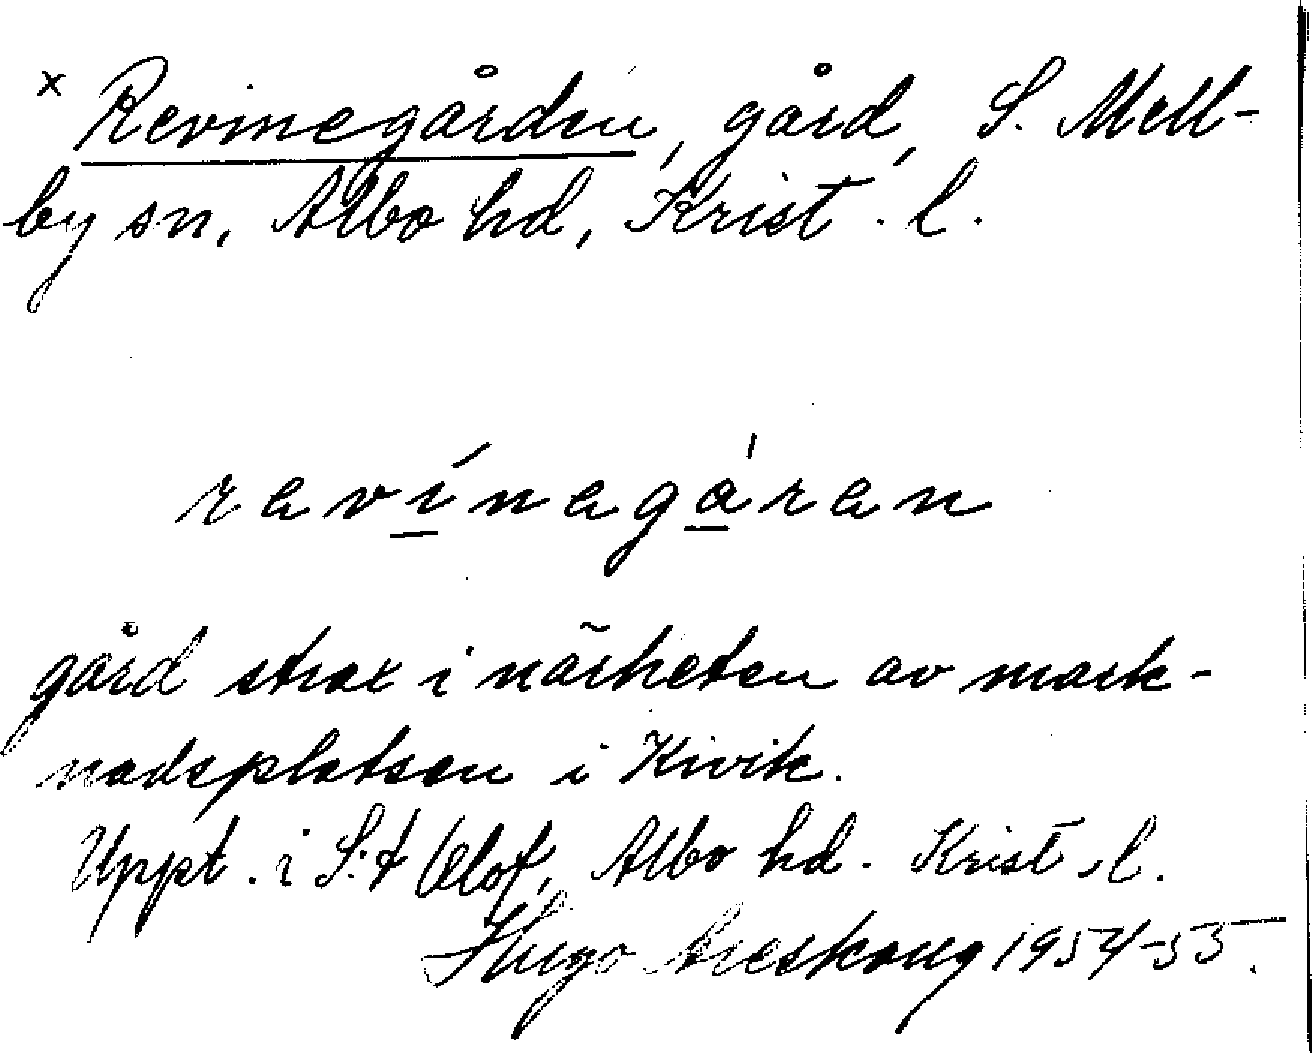 x Revinegården, gård, S. Mell-
by sn, Albo hd, Krist. l.
ravínagáran
gård strax i närheten av mark-
nadsplatsen i Kivik.
Uppt. i S:t Olof, Albo hd. Krist. l.
Hugo Areskoug 1954-55.